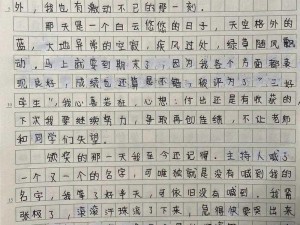 外，我也有激动不已的那一刻。
那天是一个白云悠悠的日子，天空格外的
蓝，大地异常的空旷，疾风过外，绿草随风飘
动。马上就要到期末了，因为我各个方面都表
现良好，成绩也还算是不错，被评为“三好
学生”，我心喜若狂，心想：付出还是有收获的
下次我要继续努力，争取再创佳绩，不让老师
和同学们失望。
领奖的那一天我至今还记得。主持人喊了
一个又一个的名字，可唯独就是没有喊到我的
名字，我等了好半天，可依旧没有喊到。我紧
张极了，滚滚汗珠流了下来，急得快要哭出来